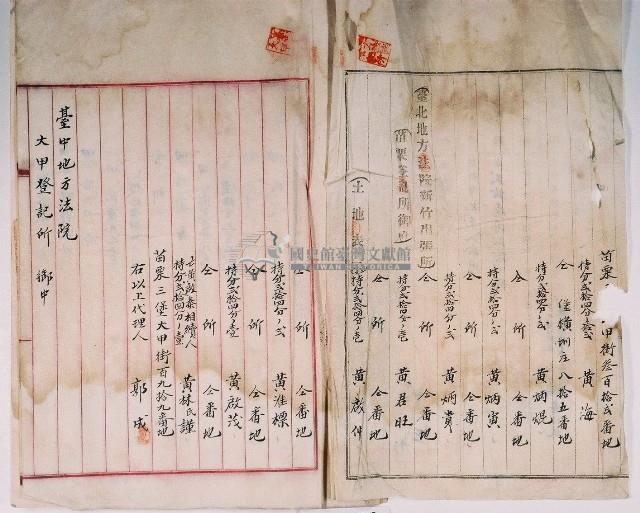 苗栗 甲街叁百拾貳番地
持分貳拾四分ノ拾貳 黃海
仝 堡横圳庄八拾五番地
持分貳拾四分ノ貳 黃炳焜
仝所 仝番地
持分貳拾四分ノ貳 黃炳寅
仝所 仝番地
持分貳拾四分ノ貳 黃炳貴
仝所 仝番地
持分貳拾四分ノ壱 黃君旺
仝所 仝番地
持分貳拾四分ノ壱 黃成仲
臺北地方法院新竹出張所
苗栗登記所御中
土地
國史館臺灣文獻館
TAIWAN HISTORICA
仝所 仝番地
持分貳拾四分ノ貳 黃淮標
仝所 仝番地
持分貳拾四分ノ壹 黃啟茂
亡黃啟泰相續人
持分貳拾四分ノ壹 黃林氏謹
苗栗三堡大甲街百九拾九番地
右以上代理人 郭成
大甲登記所 御中
臺中地方法院